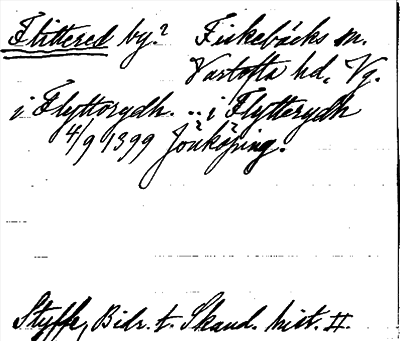 Flittered by.? Fiskebäcks sn.
Vartofta hd, Vg.
i Flyttorydh. .. i Flytterydh
4/9 1399 Jönköping.
Styffe, Bidr. t. Skand. hist. II.